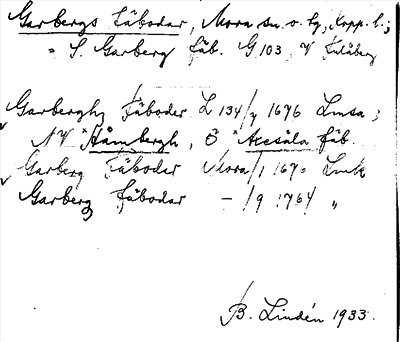 Garbergs Fäbodar, Mora sn. o. tg, Kopp. l.;
= S. Garberg fäb. G 103, V
Garberghz Fäboder L 134/7 1676 Lmsa;
NV Håmbergh, Ö Acesäla fäb.
Garberg Fäboder Mora/1 1670 Lmk
Garberg Fäbodar — /9 1764 "
B. Lindén 1933.